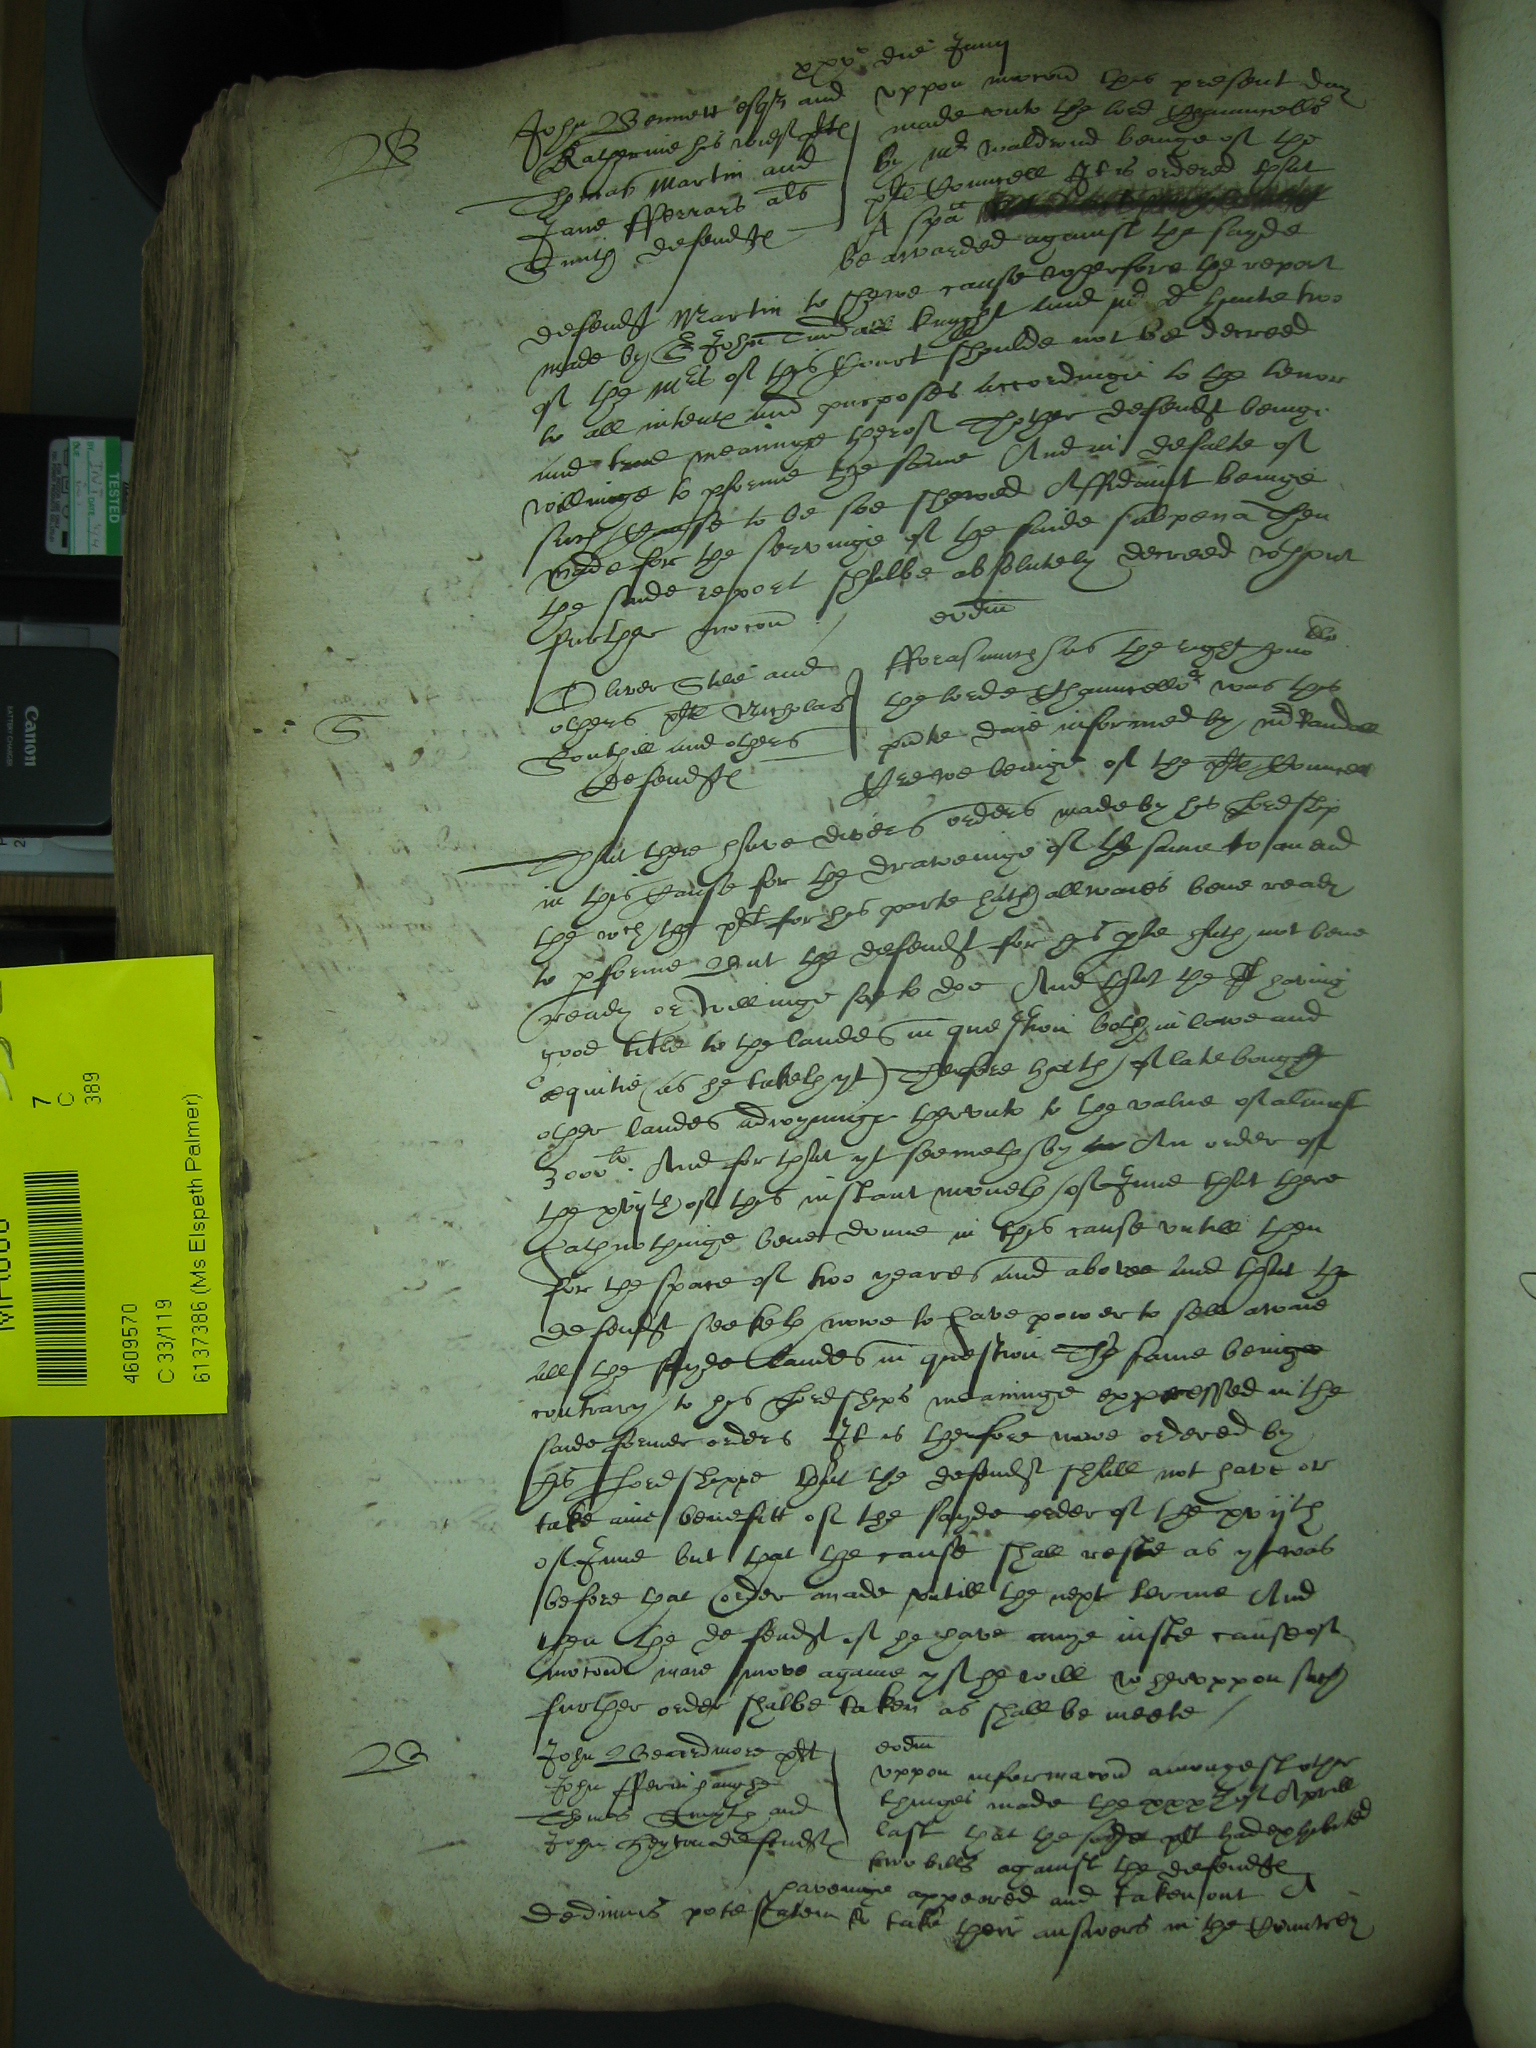 xxx die Junij
B
John Bennett esqr and
Katherine his wief plt
Thomas Martin and
Jane fferrars als
Smith defendts
vppon mocon this present day
made vnto the lord Chauncellor
by mr Waldrond beinge of the
plt Councell It is ordered that
A spa
be awarded against the sayde
defendt Martin to shewe cause wherfore the report
made by Sr John Tindall knyght and mr d hunte two
of the mrs of this Court shoulde not be decreed
to all intents and purposes accordinge to the tenor
and true meaninge therof Thother defendt beinge
willinge to pforme the same And in defalte of
such cause to be soe shewed Affidauit beinge
made for the servinge of the saide subpena Then
the saide report shalbe absolutely decreed wthout
further mocon /
eodm
S
Oliver Stile and
others plt Nicholas
Southill and others
defendts
fforasmuch as the right hono
the lorde Chauncellor was this
pnte daie informed by mr Randall
Crewe beinge of the plt Councell
That there have divers orders made by his Lordship
in this cause for the draweinge of the same to an end
the wch the plt for his parte hath allwaies bene ready
to pforme But the defendt for his pte hath not bene
ready or willinge soe to doe And that the plt having
good title to the landes in question both in lawe and
equitie (as he taketh yt) Therfore hath of late bought
other landes adioyninge thervnto to the value of almost
3000li. And for that yt seemeth by An order of
the xvijth of this instant moneth of June that there
hath nothinge bene donne in this cause vntill then
for the space of two yeares and above And that the
defendt seeketh nowe to have power to sell awaie
all the sayde landes in question The same beinge
contrary to his Lordships meaninge expressed in the
saide former orders It is therfore nowe ordered by
his Lordshippe that the defendt shall not have or
take anie benefitt of the sayde order of the xvijth
of June but that the cause shall reste as yt was
before that order made vntill the next terme And
then the defendt if he have anye iuste cause of
mocon maie move againe yf he will wherevppon such
further order shalbe taken as shall be meete /
B
John Beardmore plt
John
Thomas Smyth and
John defendts
eodm
vppon informacon amongest other
thinges made the xxxth of Aprill
last that the sayde plt had exhibited
two bills against the defendts
haveinge appeered and taken out A
dedimus potestatem to take their answers in the Countrey
TESTED
BY
DATE
Canon
BATTERY CHARGER
7
C
389
4609570
C 33/119
6137386 (Ms Elspeth Palmer)